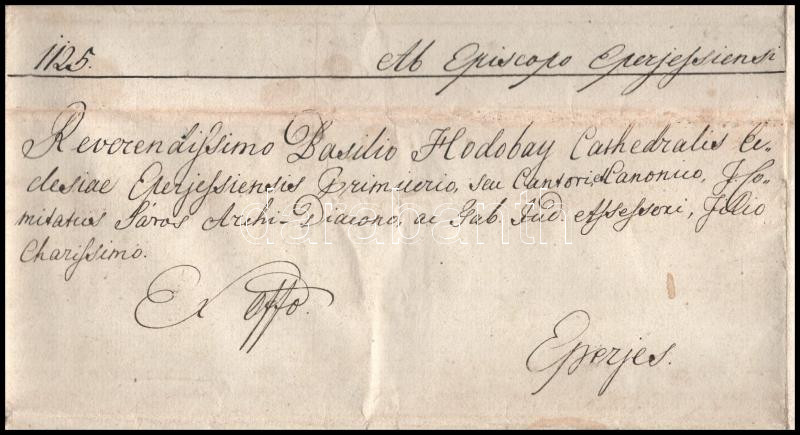 1125. Ab Episcopo Eperjeſsiensi
Reverendiſsimo Basilio Hodobay Cathedralis Ec-
clesiae Eperjeſsiensis Primicerio, seu Cantori, et Canonico, I. Co-
mitatus Sáros Archi-Diacono, ac Tab. Jud. Aſseſsori, Filio
Chariſsimo.
Ex offo.
Eperjes.
darabanth